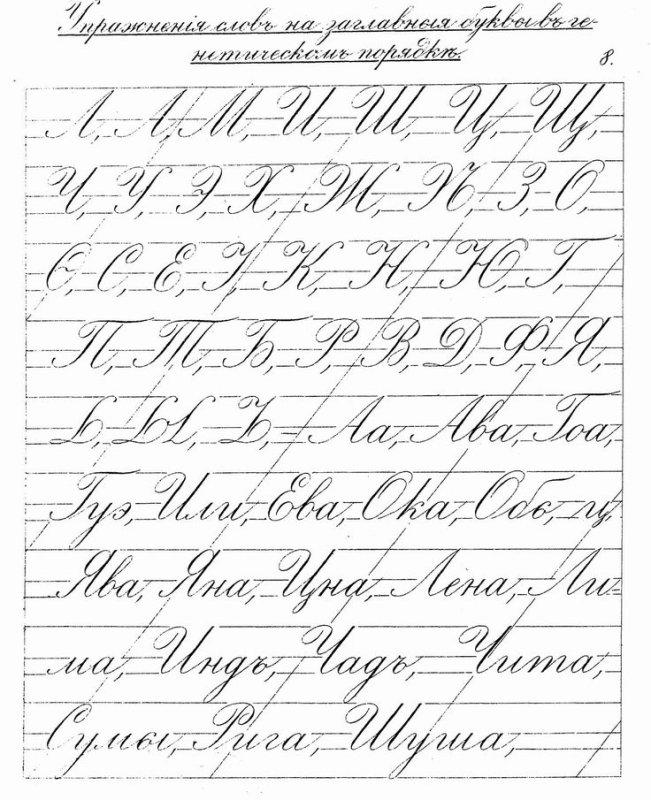 Упражненія словъ на заглавныя буквы въ ге-
нетическомъ порядкѣ.
8.
Л, А, М, И, Ш, Ц, Щ,
Ч, У, Э, Х, Ж, Ѣ, З, О,
Ѳ, С, Е, І, К, Н, Ю, Г,
П, Т, Б, Р, В, Д, Ф, Я,
Ь, Ы, Ъ, – Ла, Ава, Гоа,
Гуэ, Или, Ева, Ока, Обь, ц,
Ява, Яна, Цна, Лена, Ли=
ма, Индъ, Чадъ, Чита,
Сумы, Рига, Шуша,